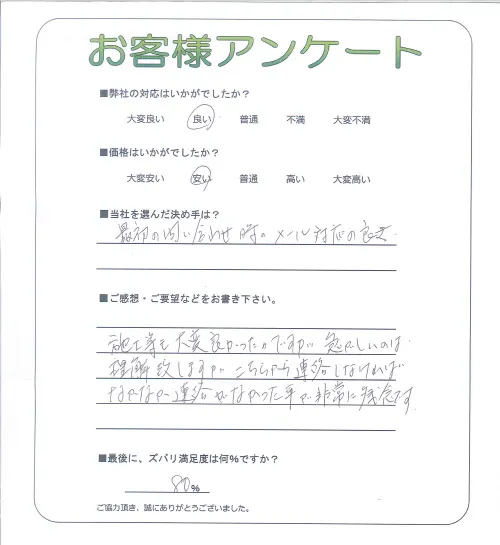 お客様アンケート
■弊社の対応はいかがでしたか？
大変良い 良い 普通 不満 大変不満
■価格はいかがでしたか？
大変安い 安い 普通 高い 大変高い
■当社を選んだ決め手は？
最初の問い合わせ時のメール対応の良さ.
■ご感想・ご要望などをお書き下さい。
施工等も大変良かったのですが 急がしいのは
理解致しますが こちらから連絡しなければ
なかなか連絡がなかった事が非常に残念です.
■最後に、ズバリ満足度は何％ですか？
80%
ご協力頂き、誠にありがとうございました。